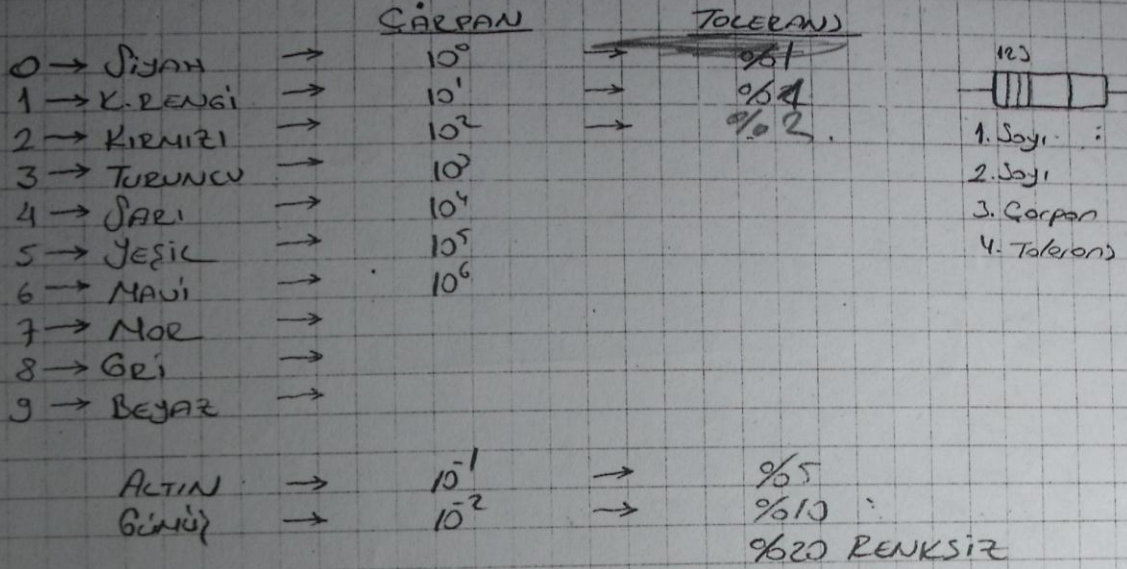 ÇARPAN TOLERANS
0 → SİYAH → 10⁰ → %1
1 → K.RENGİ → 10¹ → %1
2 → KIRMIZI → 10² → %2
3 → TURUNCU → 10³
4 → SARI → 10⁴
5 → YEŞİL → 10⁵
6 → MAVİ → 10⁶
7 → MOR →
8 → GRİ →
9 → BEYAZ →
ALTIN → 10⁻¹ → %5
GÜMÜŞ → 10⁻² → %10
%20 RENKSİZ
123
1. Sayı :
2. Sayı
3. Çarpan
4. Tolerans